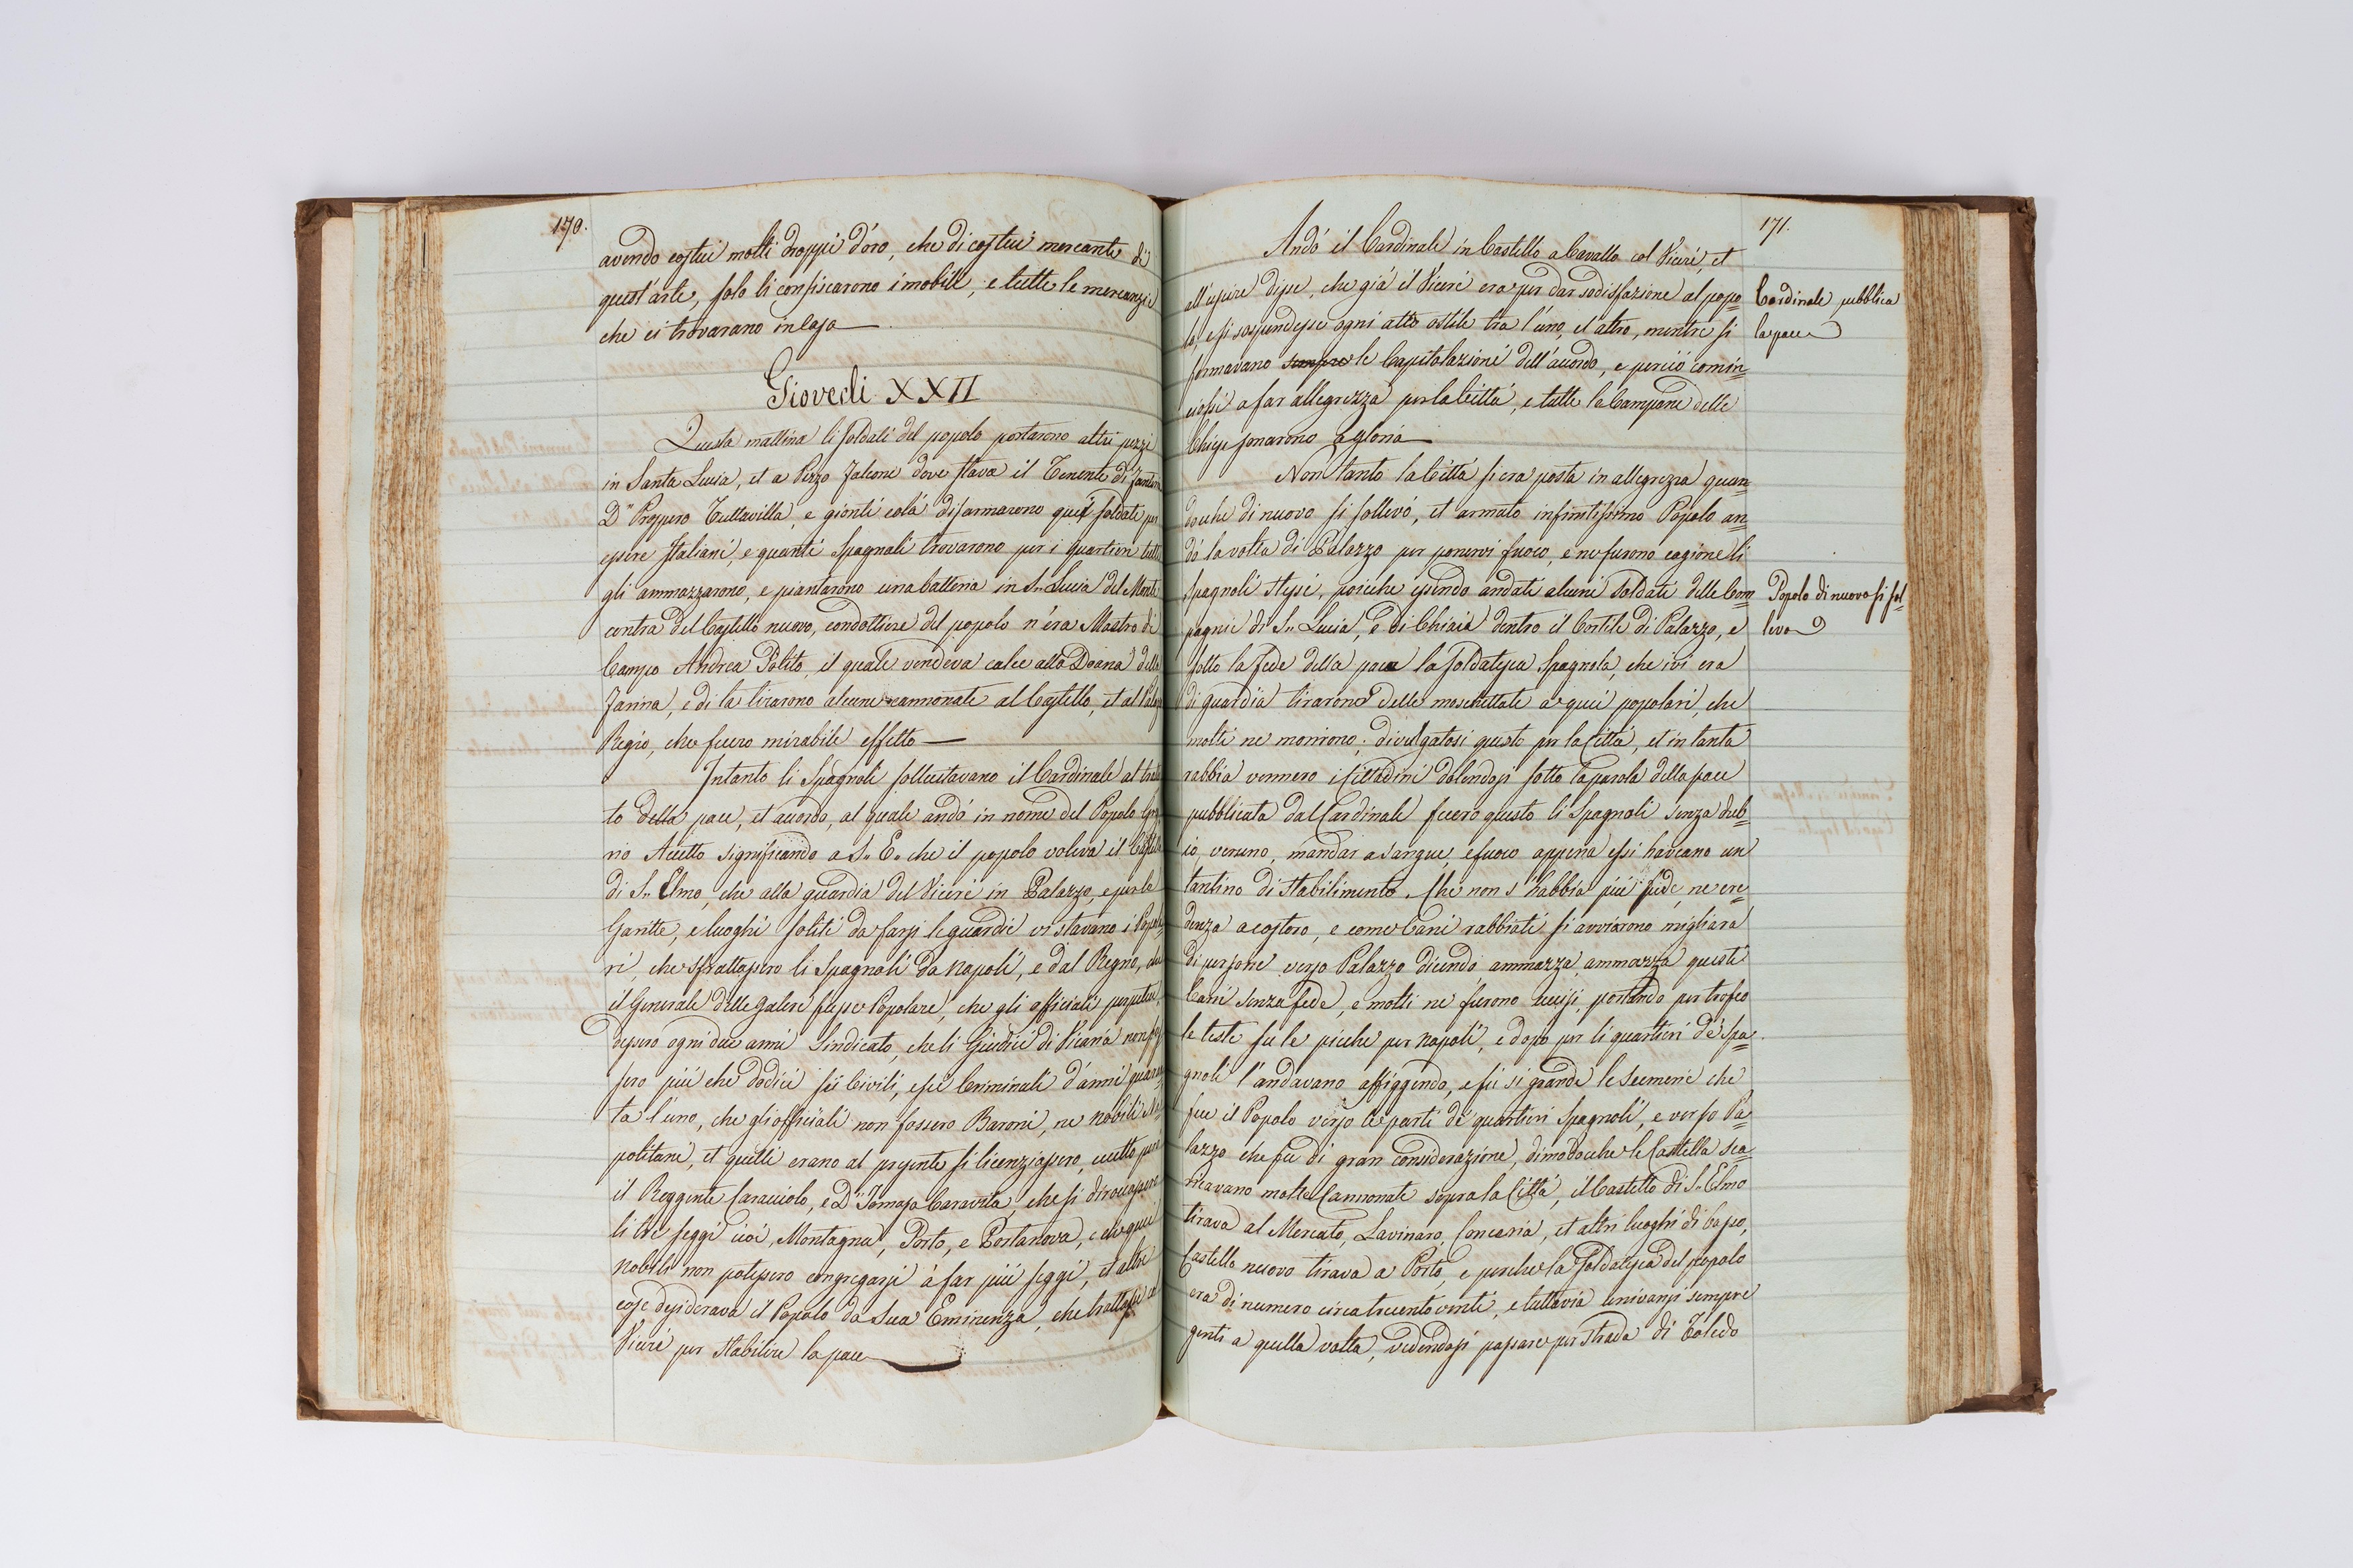 170.
avendo costui molti droppi d'oro, che di costui mercante di
quest'arte, solo li confiscarono i mobili, e tutte le mercanzie
che ci trovarano in casa
Giovedi XXII
Questa mattina li soldati del popolo portarono altri pezzi
in Santa Lucia, et a Pizzo Falcone dove stava il Tenente di
D.n Prospero Tuttavilla, e gionti colà disarmarono quei soldati per
essere Italiani, e quanti Spagnoli trovarono per i quartieri tutti
gli ammazzarono, e piantarono una batteria in S.a Lucia del Monte
contra del Castello nuovo, condottiere del popolo n'era Mastro di
Campo Andrea Polito, il quale vendeva calce alla Doana della
Farina, e di la tirarono alcune cannonate al Castello, et al
Regio, che fecero mirabile effetto
Intanto li Spagnoli sollecitavano il Cardinale al tratta
to della pace, et accordo, al quale andò in nome del Popolo
rio Accetto significando a S. E. che il popolo voleva il Castello
di S. Elmo, che alla guardia del Vicerè in Palazzo, e per le
Garitte, e luoghi soliti da farsi le guardie vi stavano i Popola
ri, che sfrattassero li Spagnoli da Napoli, e dal Regno, che
il Generale delle galere fusse Popolare, che gli officiali perpetui
dessero ogni due anni Sindicato, che li Giudici di Vicaria non fus
sero più che dodici sei Civili, e sei Criminali d'anni quaran
ta l'uno, che gli officiali non fossero Baroni, ne nobili Na
politani, et quelli erano al presente si licenziassero, eccetto però
il Reggente Caracciolo, e D. Tomaso Caravita, che si diroccassero
li tre seggi cioè, Montagna, Porto, e Portanova, e che quei
nobili non potessero congregarsi à far più seggi, et altre
cose desiderava il Popolo da Sua Eminenza, che trattasse col
Vicerè per stabilire la pace
171.
Andò il Cardinale in Castello a Cavallo col Vicerè, et
all'uscire disse, che già il Vicerè era per dar sodisfazione al popo=
lo, e si sospendesse ogni atto ostile tra l'uno, et altro, mentre si
formavano sempre le Capitolazioni dell'accordo, e perciò comin=
ciossi a far allegrezza per la Città, e tutte le Campane delle
Chiese sonarono a gloria
Cardinale pubblica
la pace
Non tanto la Città si era posta in allegrezza quan=
do che di nuovo si sollevò, et armato infinitissimo Popolo an=
dò la volta di Palazzo per ponervi fuoco, e ne furono cagione li
Spagnoli stessi, poiche essendo andati alcuni Soldati delle Com=
pagnie di S. Lucia, e di Chiaia dentro il Cortile di Palazzo, e
sotto la fede della pace la Soldatesca Spagnola, che ivi era
di guardia tirarono delle moschettate a quei popolari, che
molti ne morirono; divulgatosi questo per la Città, et in tanta
rabbia vennero i Cittadini dolendosi sotto la parola della pace
pubblicata dal Cardinale fecero questo li Spagnoli senza dub=
io, veruno, mandar a sangue, e fuoco appena essi haveano un
tantino di stabilimento. Che non s'habbia più fede, ne cre=
denza a costoro, e come Cani rabbiati si avviarono migliara
di persone verso Palazzo dicendo ammazza, ammazza questi
Cani senza fede, e molti ne furono uccisi, portando per trofeo
le teste su le picche per Napoli, e dopo per li quartieri de' Spa=
gnoli l'andavano affiggendo, e fù si grande le che
fece il Popolo verso le parti de' quartieri Spagnoli, e verso Pa=
lazzo che fù di gran considerazione, dimodocche le Castella sca=
ricavano molte Cannonate sopra la Città, il Castello di S. Elmo
tirava al Mercato, Lavinaro, Conciaria, et altri luoghi di basso,
Castello nuovo tirava a Porto, e perche la Soldatesca del popolo
era di numero circa trecento venti, e tuttavia univansi sempre
genti a quella volta, vedendosi passare per strada di Toledo
Popolo di nuovo si sol=
levo